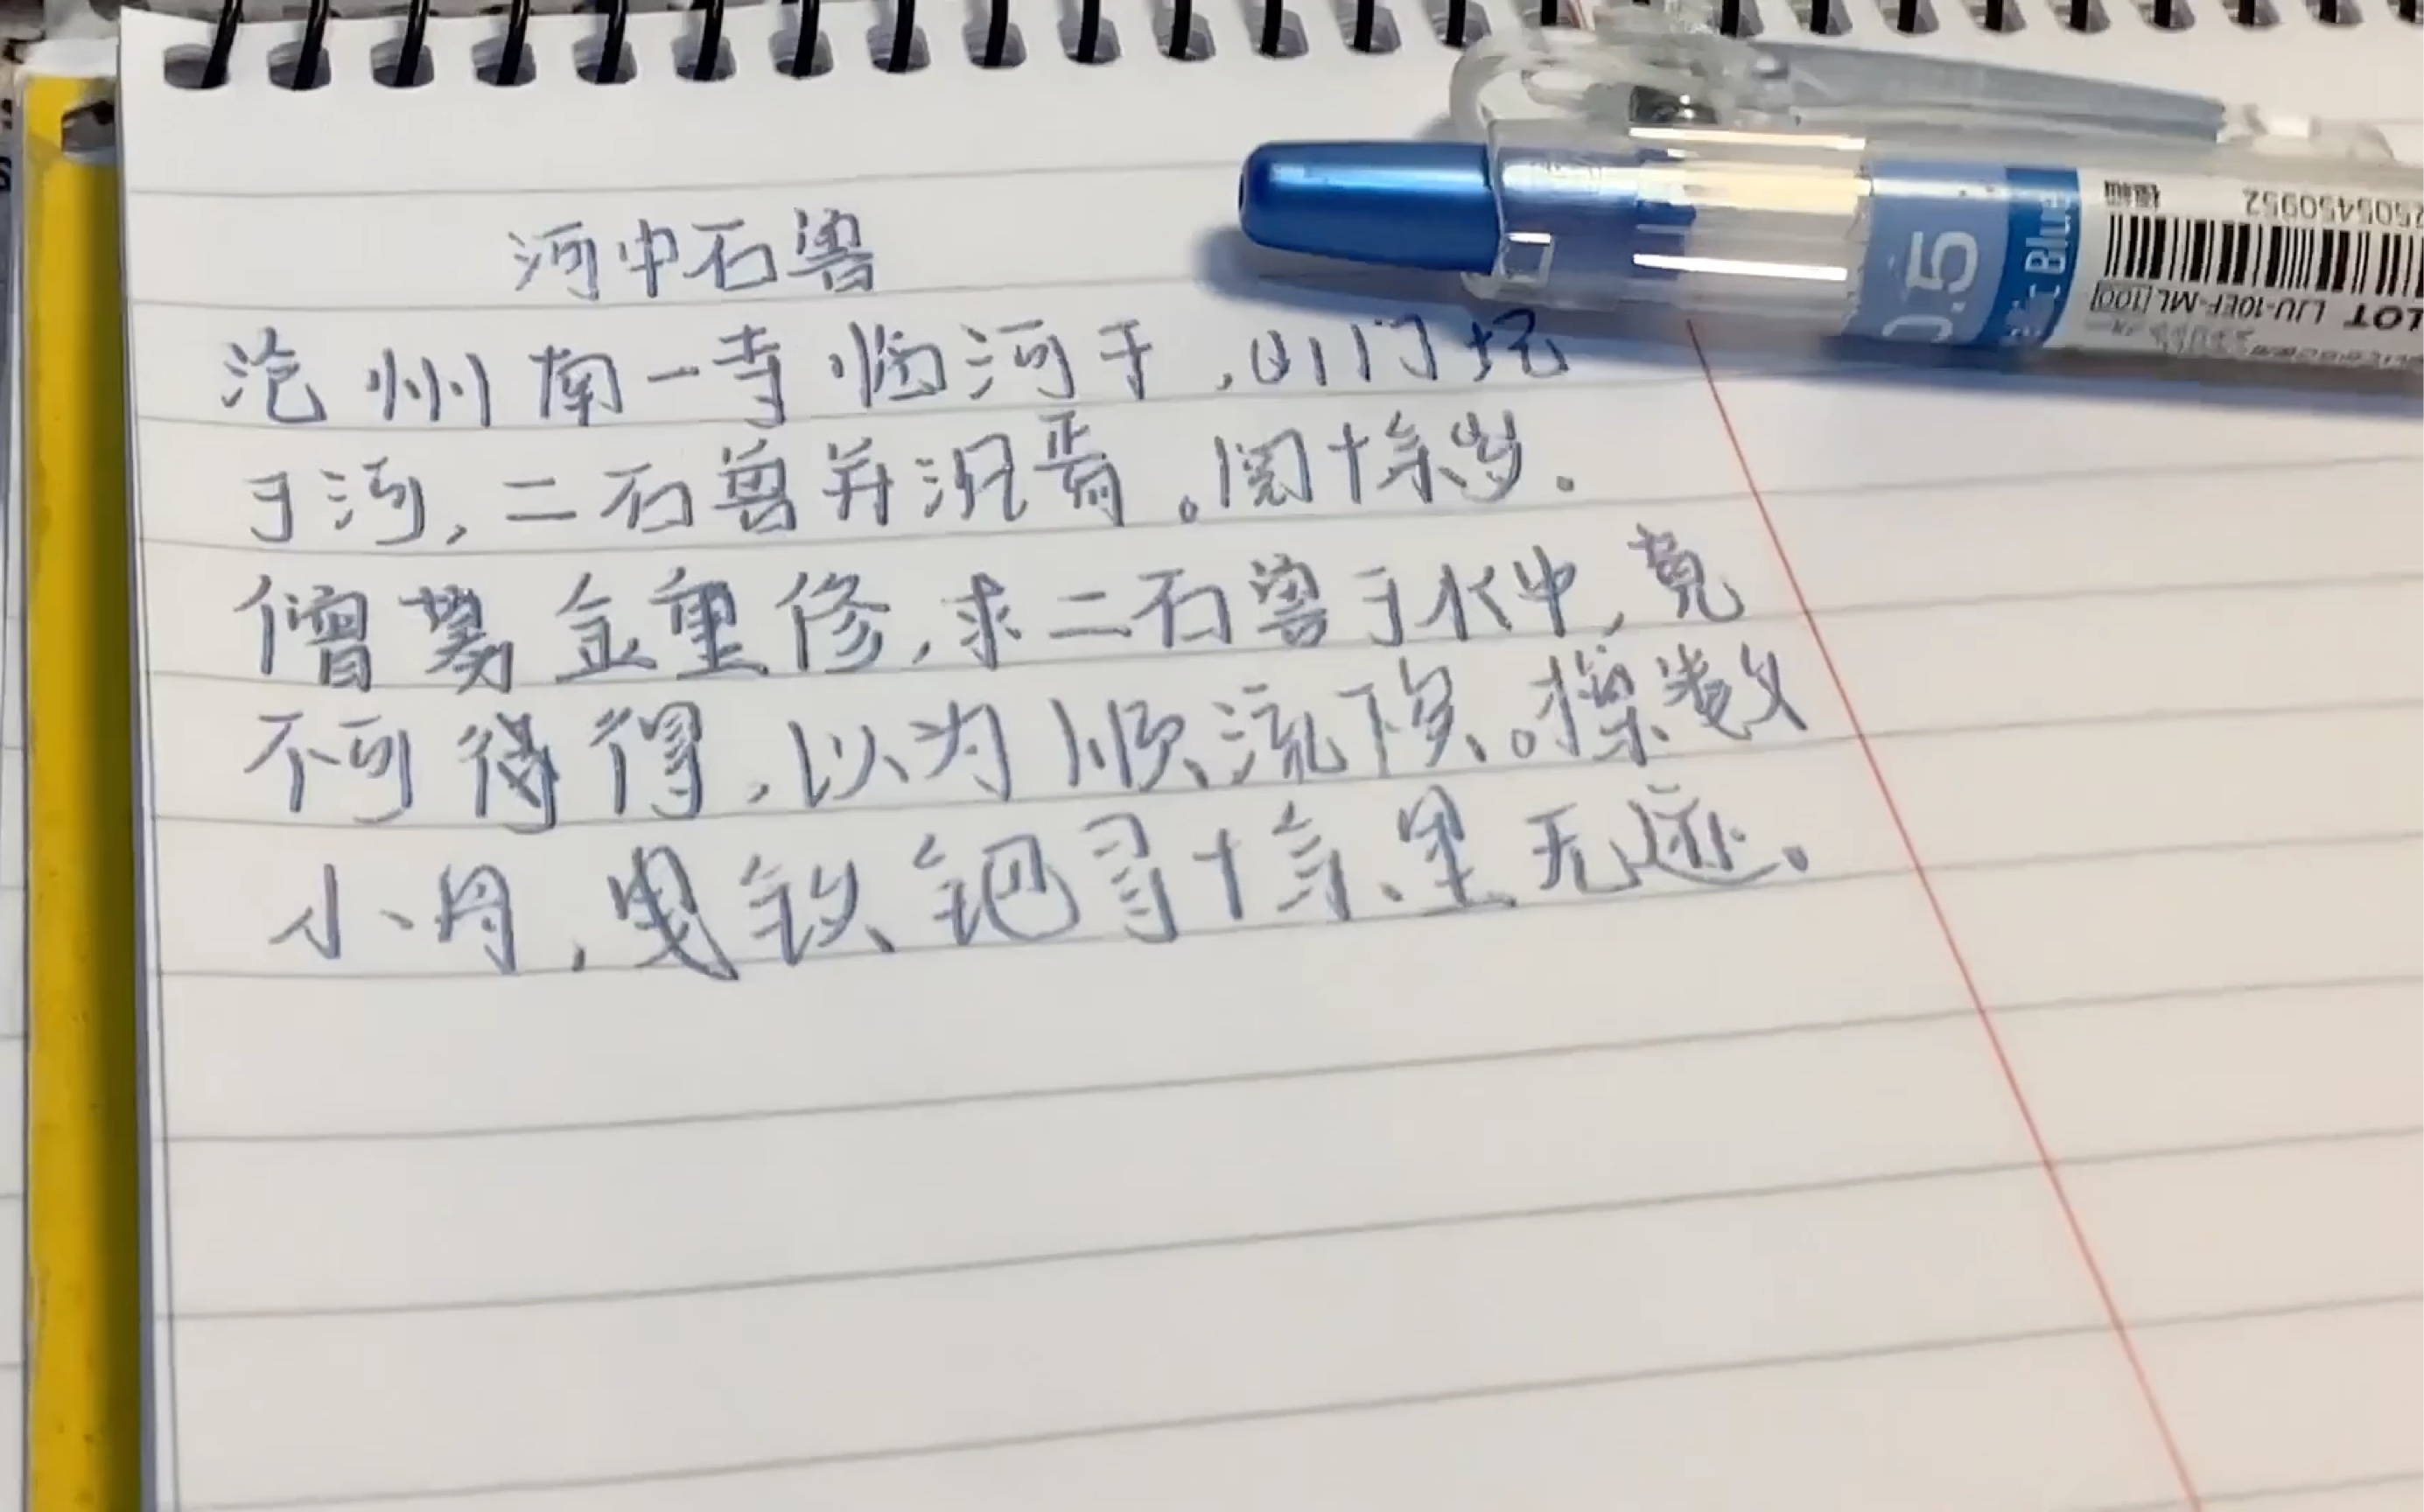 河中石兽
沧州南一寺临河干,山门圮
于河,二石兽并沉焉。阅十余岁.
僧募金重修,求二石兽于水中,竟
不可得得,以为顺流下矣。棹数
小舟,曳铁钯寻十余里无迹。
0.5
Blue
2505450952
LJU-10EF-ML [100]